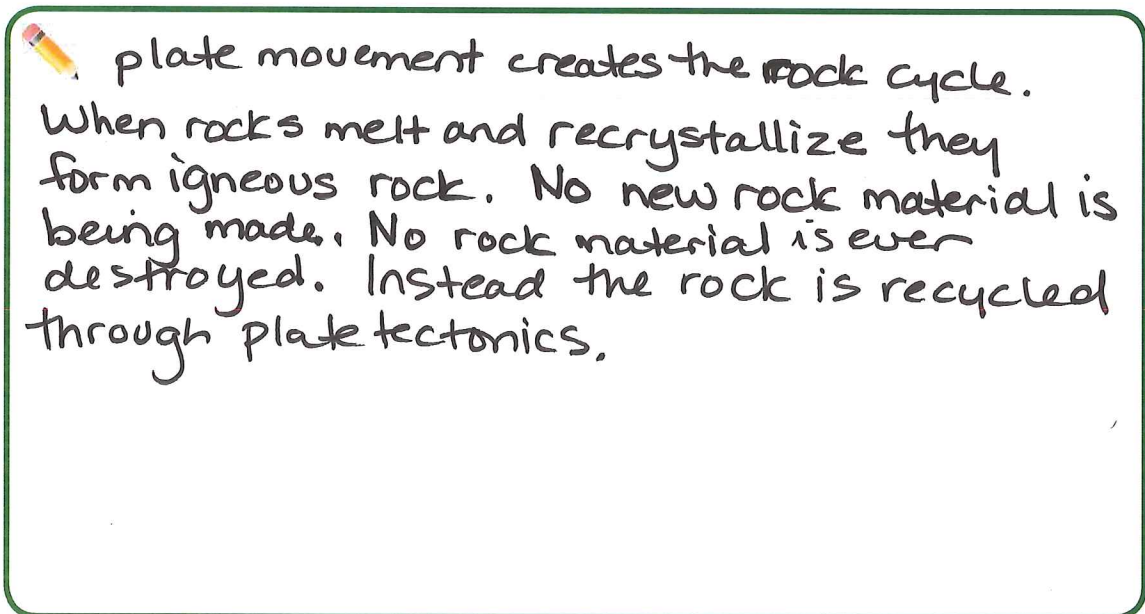 plate movement creates the rock cycle.
When rocks melt and recrystallize they
form igneous rock. No new rock material is
being made. No rock material is ever
destroyed. Instead the rock is recycled
through plate tectonics.